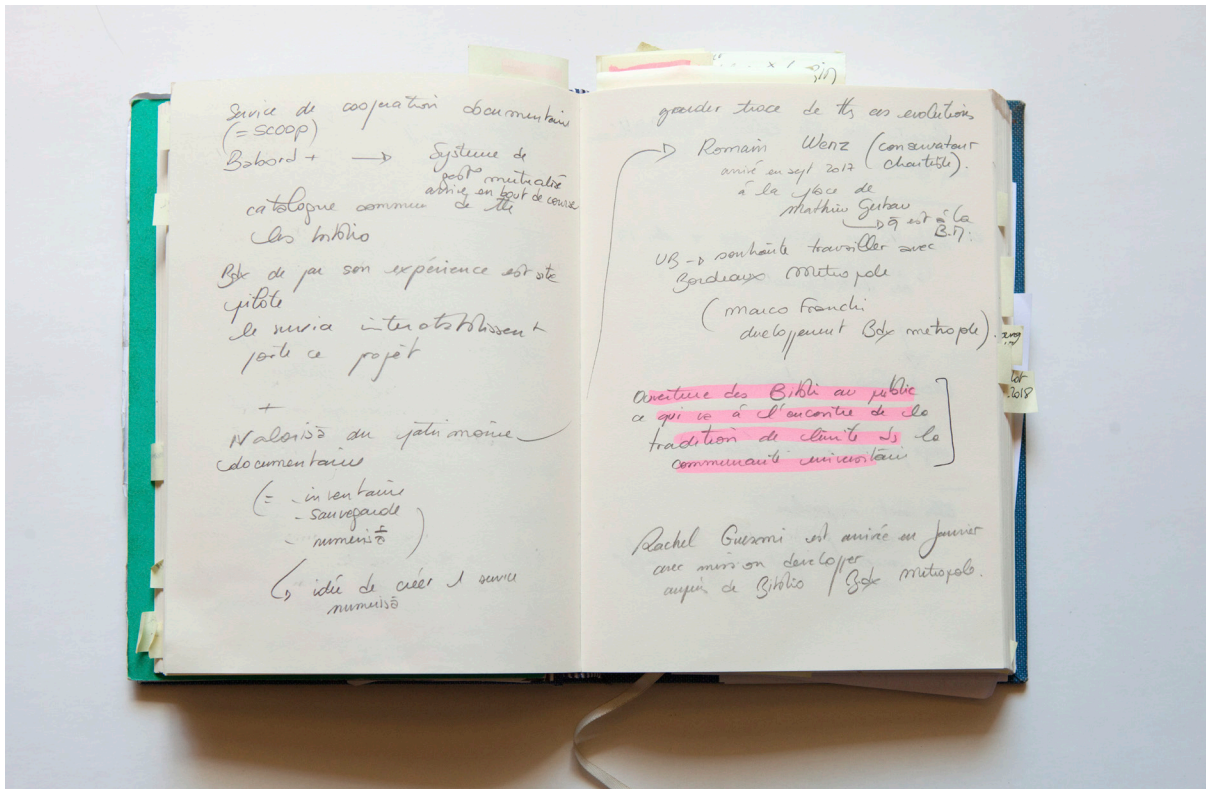 Service de cooperation documentaire
(= SCOOP)
Babord + → Système de
gest° mutualisé
arrive en bout de course
catalogue commun de tts
les biblio
Bdx de par son expérience est site
pilote
le service interetablissent
porte ce projet
+
Valoris° du patrimoine
documentaire
(= - inventaire
- sauvegarde
- numeris° )
↳ idée de créer 1 service
numeris°
garder trace de tts ces evolutions
→ Romain Wenz (conservateur
chartiste).
arrivé en sept 2017
à la place de
Mathieu
↳ est à la
B.M.
UB → souhaite travailler avec
Bordeaux Metropole
(Marco Franchi
developpement Bdx metropole).
Ouverture des Bibli au public
ce qui va à l'encontre de la
tradition de limite ds la
communauté universitaire
Rachel est arrivée en Janvier
avec mission developper
auprès de Biblio / Bdx Metropole.
2018